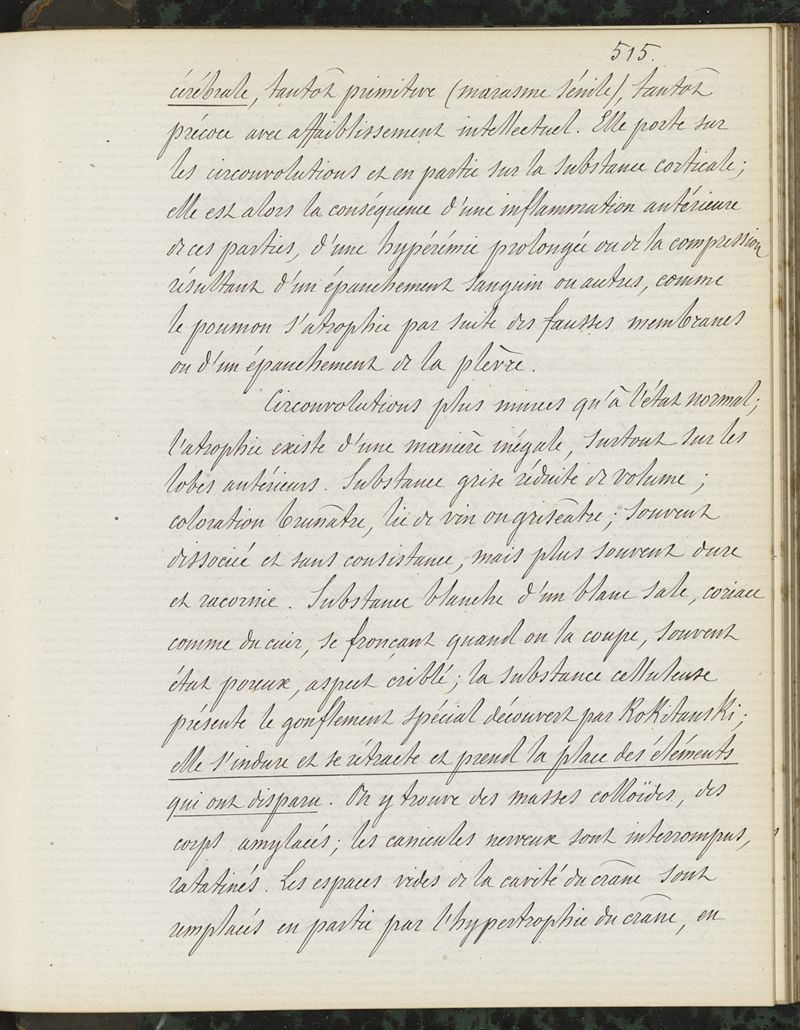 515.
cérébrale, tantôt primitive (marasme sénile), tantôt
précoce avec affaiblissement intellectuel. Elle porte sur
les circonvolutions et en partie sur la substance corticale;
elle est alors la conséquence d'une inflammation antérieure
de ces parties, d'une hypérémie prolongée ou de la compression
résultant d'un épanchement sanguin ou autres, comme
le poumon s'atrophie par suite des fausses membranes
ou d'un épanchement de la plèvre.
Circonvolutions plus minces qu'à l'état normal;
l'atrophie existe d'une manière inégale, surtout sur les
lobes antérieurs. Substance grise réduite de volume;
coloration brunâtre, lie de vin ou grisâtre; souvent
dissociée et sans consistance, mais plus souvent dure
et racornie. Substance blanche d'un blanc sale, coriace
comme du cuir, se fronçant quand on la coupe, souvent
état poreux, aspect criblé; la substance celluleuse
présente le gonflement spécial découvert par Rokitanski;
elle s'indure et se rétracte et prend la place des éléments
qui ont disparu. On y trouve des masses colloïdes, des
corps amylacés; les canicules nerveux sont interrompus,
ratatinés. Les espaces vides de la cavité du crâne sont
remplacés en partie par l'hypertrophie du crâne, en